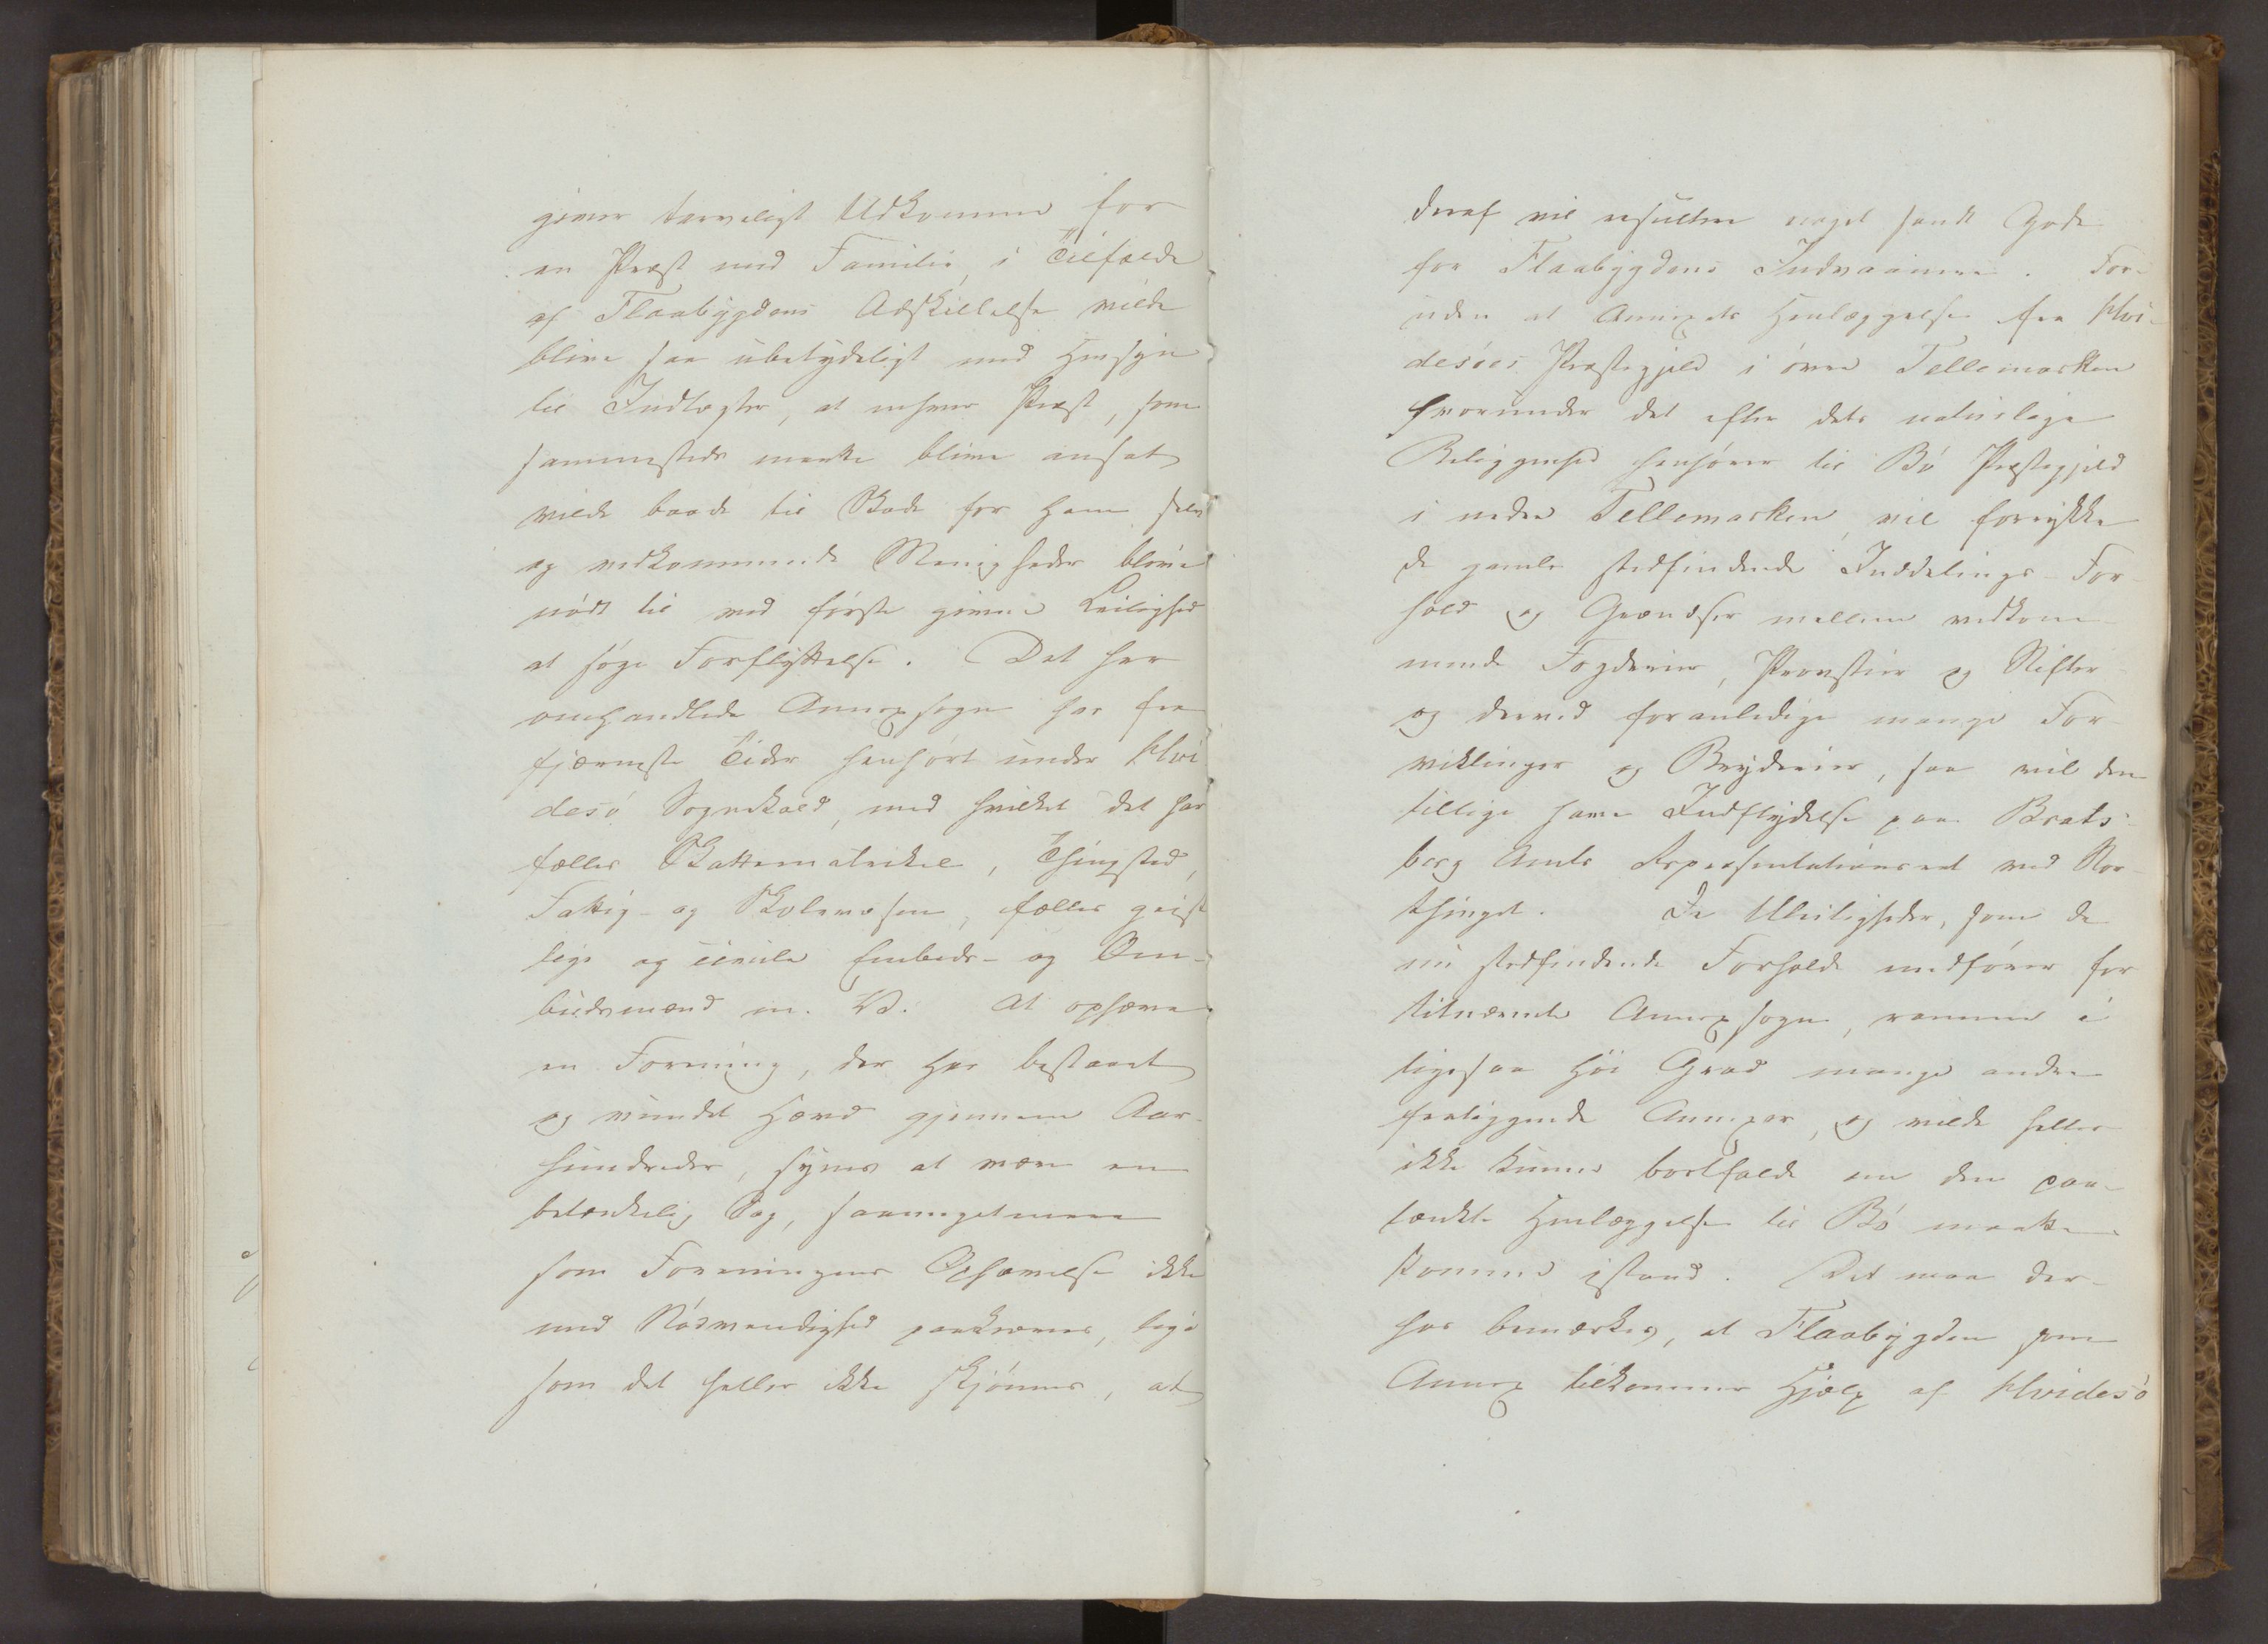 giver tarveligt Udkomme for
en Præst med Familie, i Tilfælde
af Flaabygdens Adskillelse vilde
blive saa ubetydeligt med Hensyn
til Indtægter, at enhver Præst, som
sammesteds maatte blive ansat
vilde baade til Skade for ham selv
og vedkommende Menigheder blive
nødt til ved første givne Leilighed
at søge Forflyttelse. Det her
omhandlede Annexsogn har fra
fjærneste Tider henhørt under Hvi
desø Sognekald, med hvilket det har
fælles Skattematrikel, Thingsted,
Fattig- og Skolevæsen, fælles geist
lige og civile Embeds- og Om-
budsmænd m. V. At ophæve
en Forening, der har bestaaet
og vundet Hævd gjennem Aar-
hundreder, synes at være en
betænkelig Sag, saameget mere
som Foreningens Ophævelse ikke
med Nødvendighed paakræves, lige
som det heller ikke skjønnes, at
deraf vil resultere noget sandt Gode
for Flaabygdens Indvaanere. For-
uden at Annexets Henlæggelse fra Hvi-
desøes Præstegjeld i øvre Tellemarken
hvorunder det efter dets naturlige
Beliggenhed henhører til Bø Præstegjeld
i nedre Tellemarken, vil forrykke
de gamle stedfindende Inddelings-For-
hold og Grændser mellem vedkom-
mende Fogderier, Provstier og Stifter
og derved foranledige mange For-
viklinger og Bryderier, saa vil den
tillige have Indflydelse paa Brats-
berg Amts Repræsentationsret ved Stor-
thinget. De Uleiligheder, som de
nu stedfindende Forholde medfører for
bitnævnte Annexsogn, ramme i
ligesaa høi Grad mange andre
fraliggende Annexer, og vilde heller
ikke kunne bortfalde om den paa-
tænkte Henlæggelse til Bø maatte
komme istand. Det maa der-
hos bemærkes, at Flaabygden som
Annex tilkommer Hjælp af Hvidesø